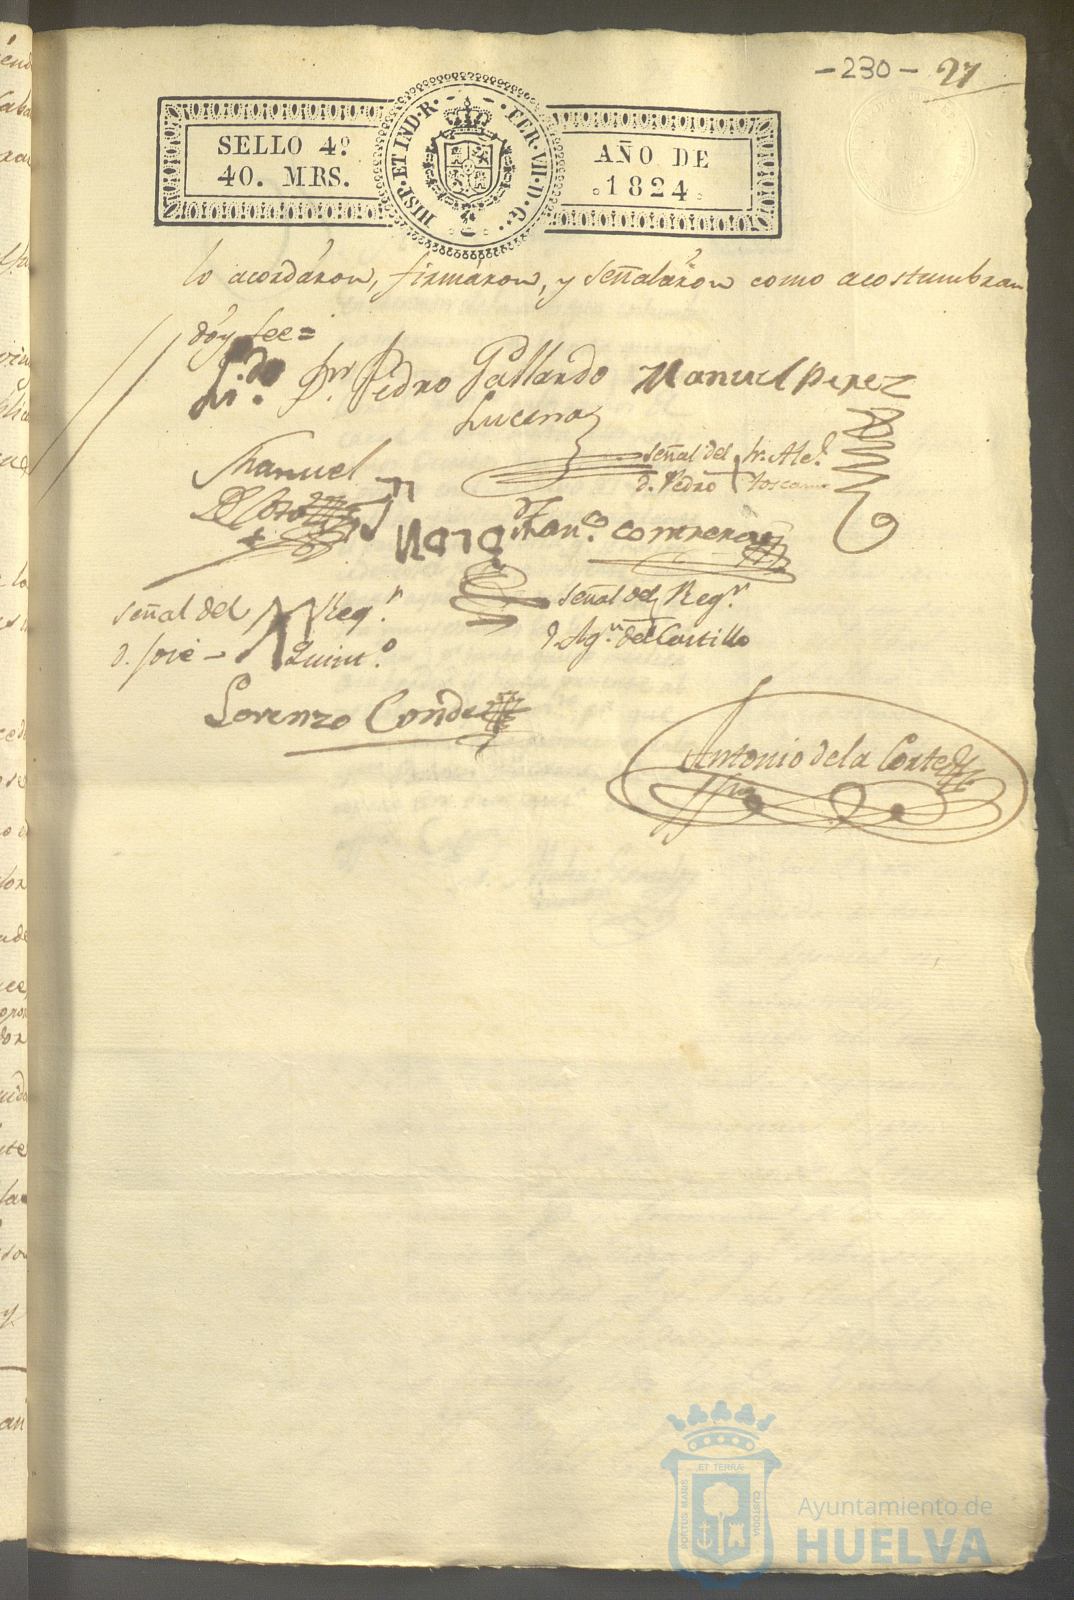 -230- 27
SELLO 4º
40. MRS.
HISP. ET IND. R. FER. VII. D. G.
AÑO DE
1824
lo acordáron, firmáron, y señaláron como acostumbran
dóy fee=
Li.do Dn Pedro Gallardo
Lucena
Manuel Perez
señal del Sr. Alc.
d. Pedro Toscano
Manuel
Franco. contreras
señal del Regn.
d. José Quint.o
señal del Regn.
d Agn. del Castillo
Lorenzo Conde
Antonio de la Corte
ET TERRÆ
PORTUS MARIS
CUSTODIA
Ayuntamiento de
HUELVA